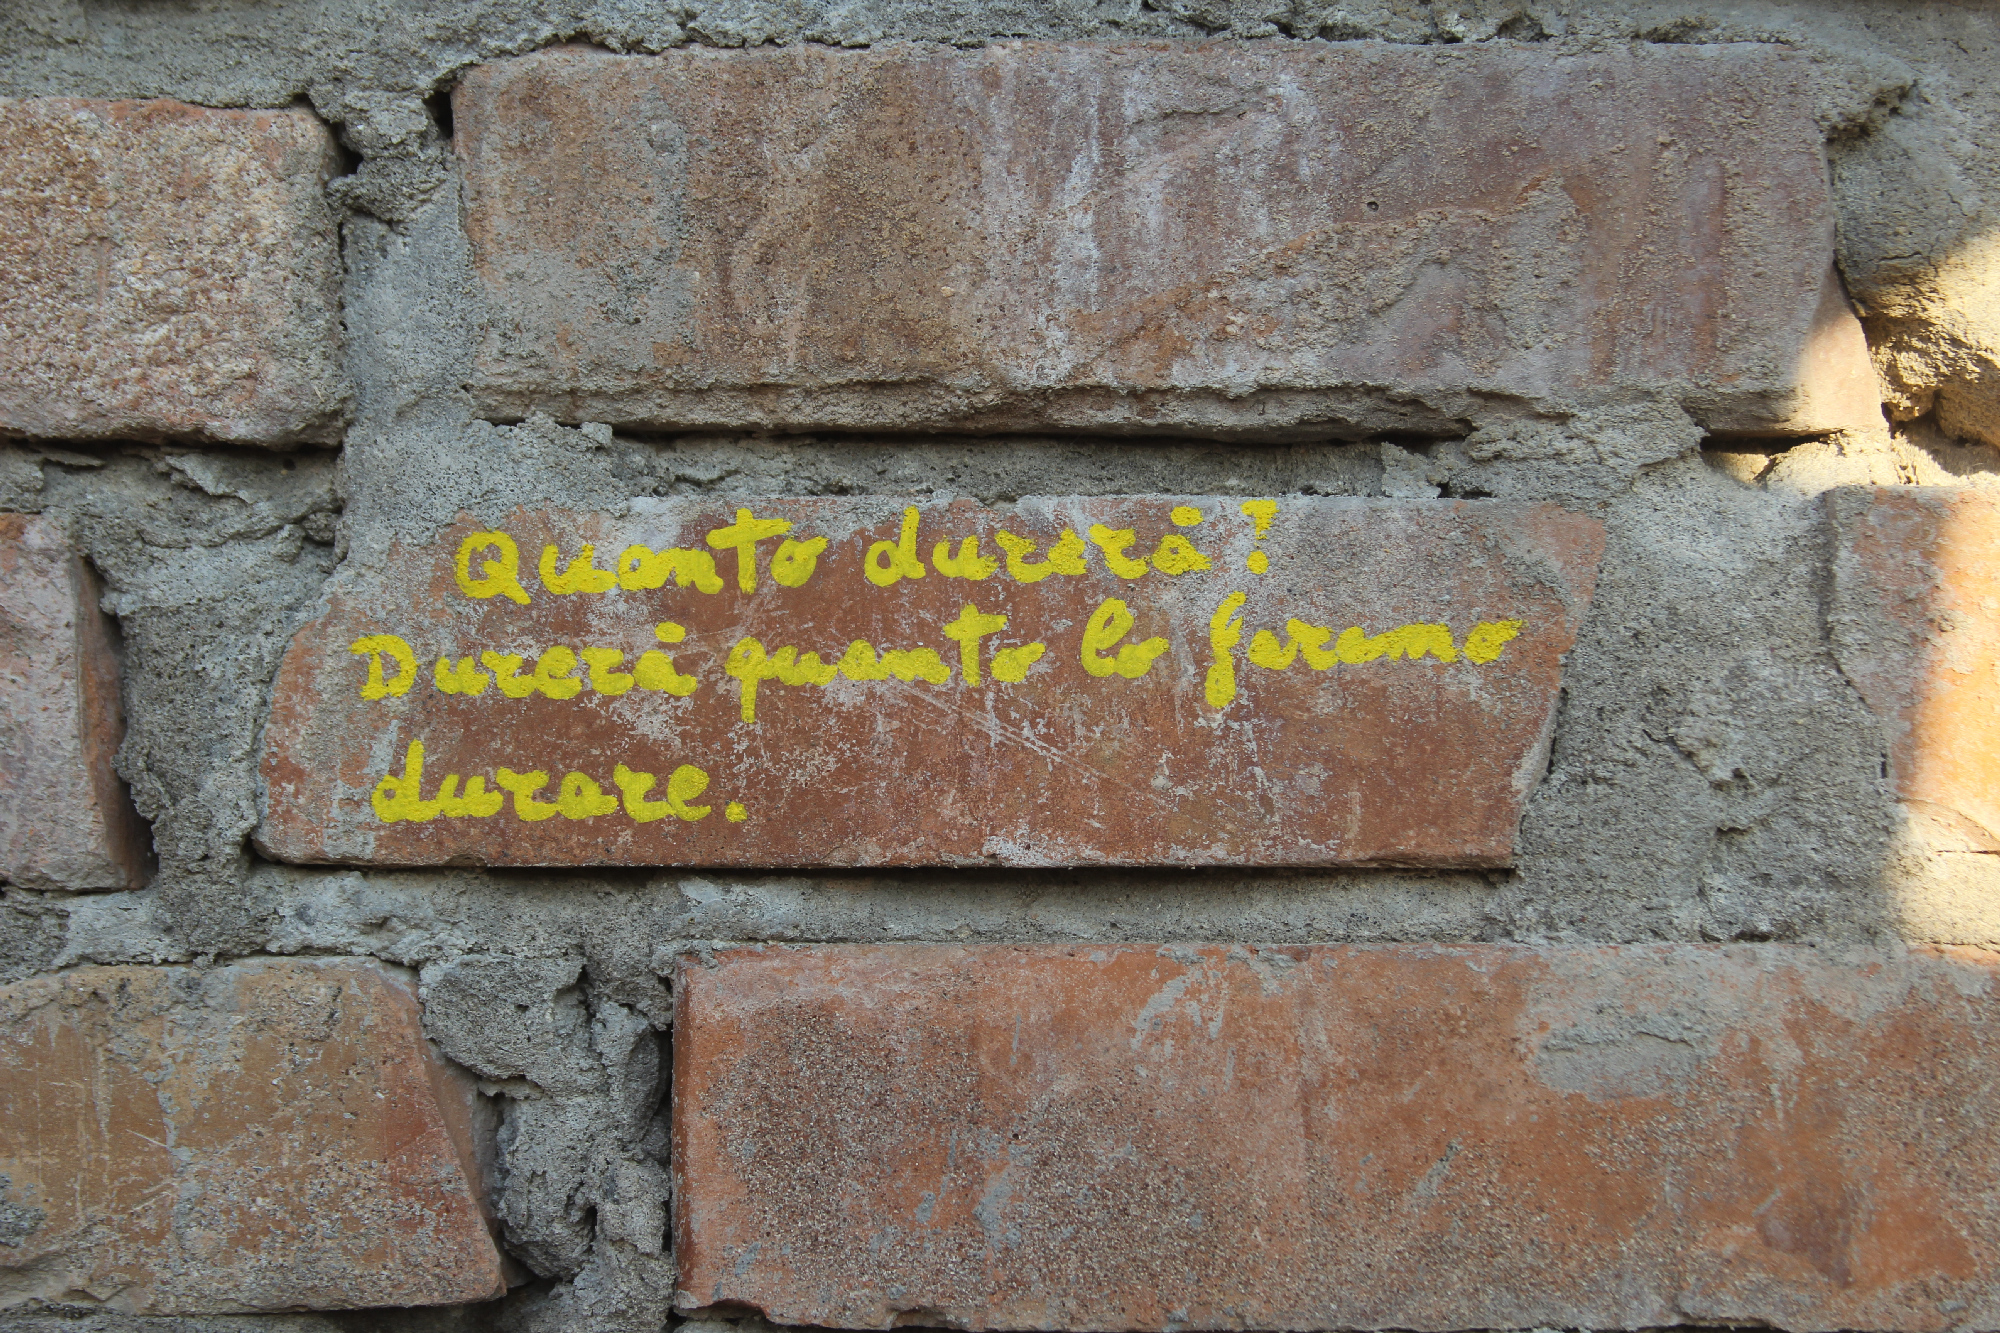 Quanto durerà?
Durerà quanto lo faremo
durare.